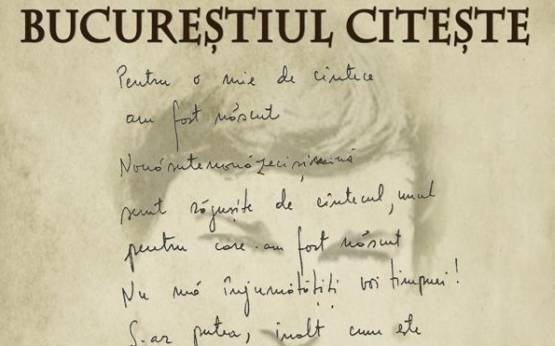 BUCUREȘTIUL CITEȘTE
Pentru o mie de cîntece
am fost născut
Nouăsutenouăzecișinouă
sunt răgușite de cîntecul, unul
pentru care am fost născut
Nu mă înjumătățiți voi timpuri!
S-ar putea, înalt cum este